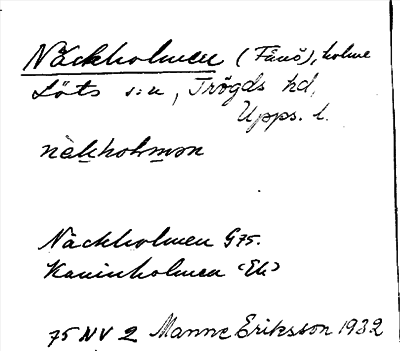 Näckholmen (Fånö), holme
Löts s:n, Trögds hd,
Upps. l.
nèkholmən
Näckholmen G75.
Kaninholmen (Ek)
75 NV 2 Manne Eriksson 1932